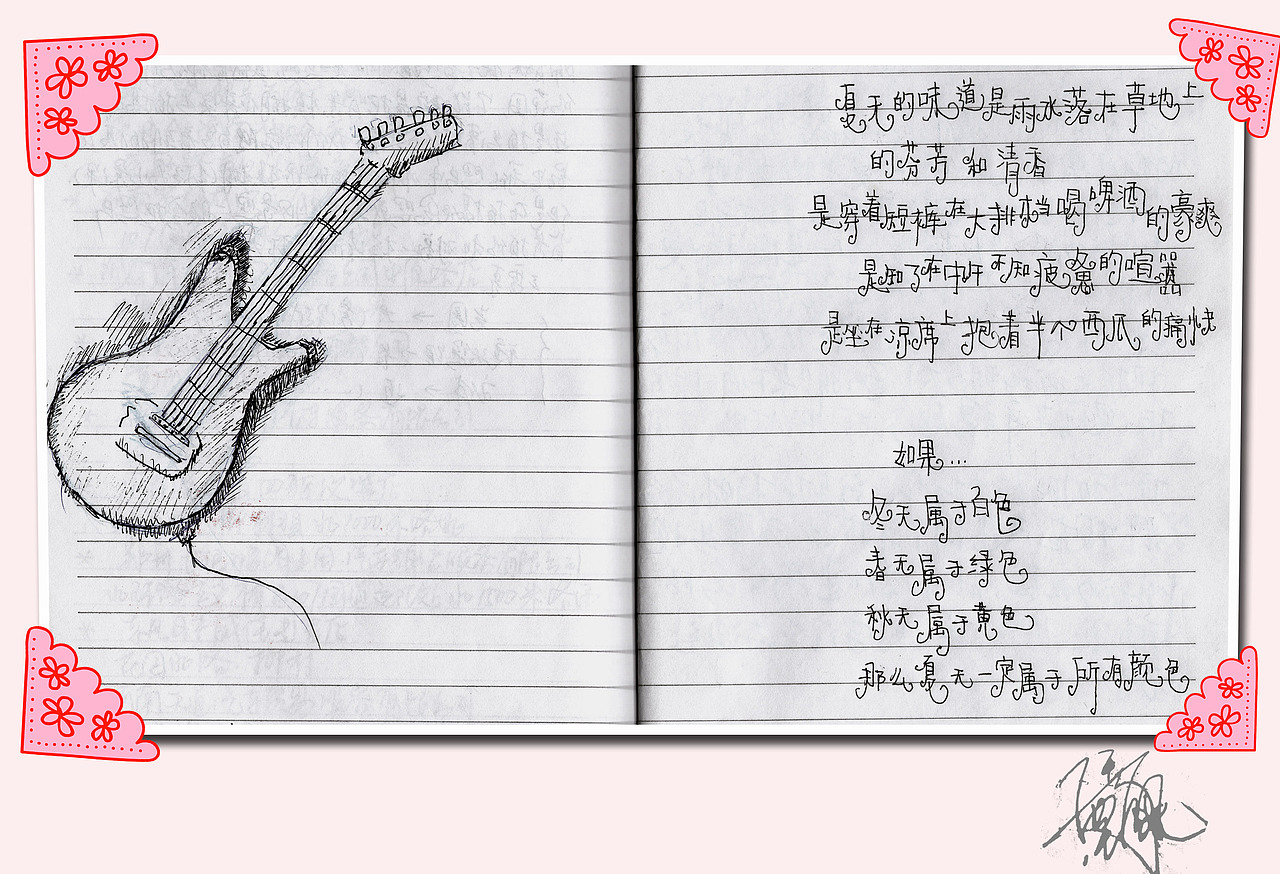 夏天的味道是雨水落在草地上
的芬芳和清香
是穿着短裤在大排档喝啤酒的豪爽
是知了在中午不知疲惫的喧嚣
是坐在凉席上抱着半个西瓜的痛快
如果...
冬天属于白色
春天属于绿色
秋天属于黄色
那么夏天一定属于所有颜色